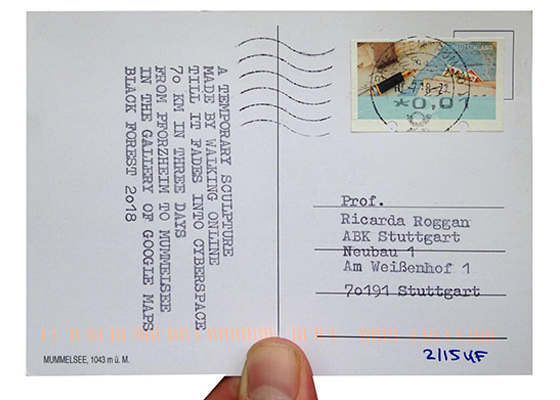 A TEMPORARY SCULPTURE
MADE BY WALKING ONLINE
TILL IT FADES INTO CYBERSPACE
70 KM IN THREE DAYS
FROM PFORZHEIM TO MUMMELSEE
IN THE GALLERY OF GOOGLE MAPS
BLACK FOREST 2018
DEUTSCHLAND
*0,01
Prof.
Ricarda Roggan
ABK Stuttgart
Neubau 1
Am Weißenhof 1
70191 Stuttgart
MUMMELSEE, 1043 m ü. M.
2/15 UF